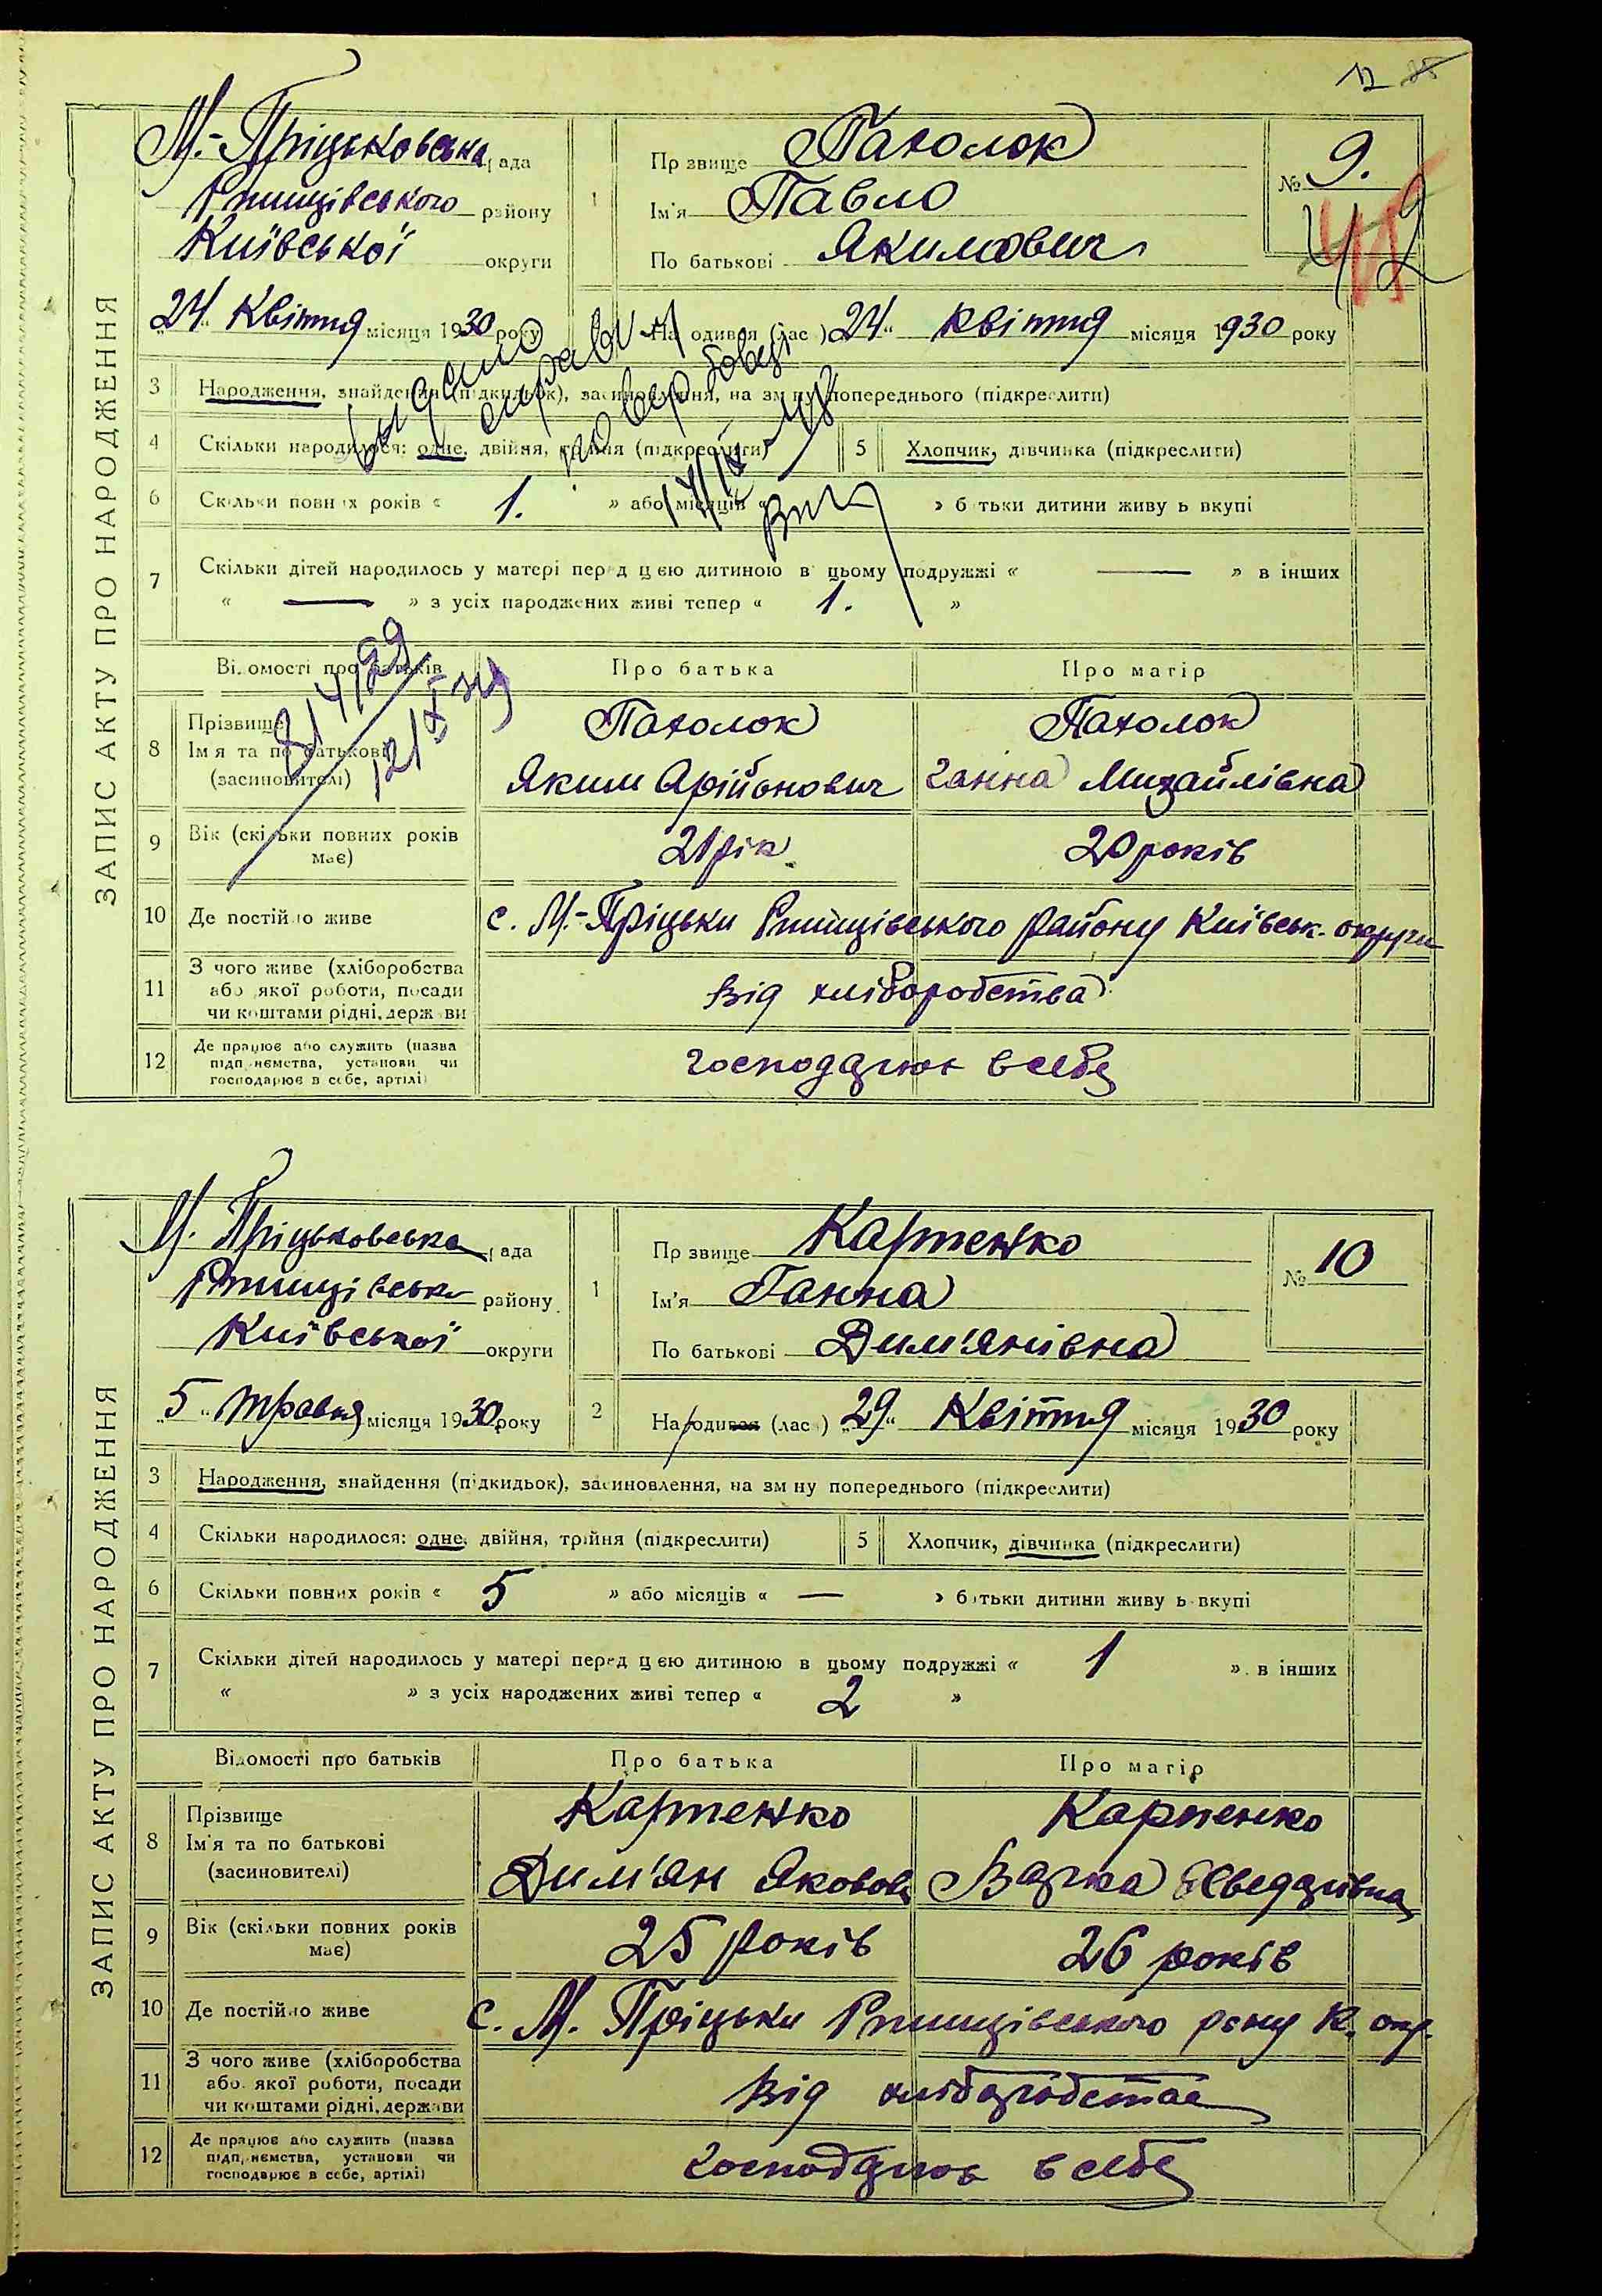 12
М.-Пріцьковська рада
Ржищівського району
Київської округи
1 Прізвище Пахолок
Ім'я Павло
По батькові Якимович
№ 9.
„24“ Квітня місяця 1930 року
Народився (лась) „24“ квітня місяця 1930 року
ЗАПИС АКТУ ПРО НАРОДЖЕННЯ
3 Народження, знайдення (підкидьок), засиновлення, на зміну попереднього (підкреслити)
4 Скільки народилося: одне, двійня, трійня (підкреслити)
5 Хлопчик, дівчинка (підкреслити)
6 Скільки повних років « 1. » або місяців « » батьки дитини живуть вкупі
7 Скільки дітей народилось у матері перед цією дитиною в цьому подружжі « — » в інших
« — » з усіх народжених живі тепер « 1. »
Відомості про батьків Про батька Про матір
8 Прізвище
Ім'я та по батькові
(засиновителі)
Пахолок Пахолок
Яким Арійонович Ганна Михайлівна
9 Вік (скільки повних років має) 21 рік 20 років
10 Де постійно живе с. М.-Пріцьки Ржищівського району Київськ. округи
11 З чого живе (хліборобства
або якої роботи, посади
чи коштами рідні, держави
Від хліборобства
12 Де працює або служить (назва
підприємства, установи чи
господарює в себе, артілі)
господарює в себе
М. Пріцьковська рада
Ржищівськ району
Київської округи
1 Прізвище Карпенко
Ім'я Ганна
По батькові Дим'янівна
№ 10
„5“ травня місяця 1930 року
2 Народилась (лась) „29“ Квітня місяця 1930 року
ЗАПИС АКТУ ПРО НАРОДЖЕННЯ
3 Народження, знайдення (підкидьок), засиновлення, на зміну попереднього (підкреслити)
4 Скільки народилося: одне, двійня, трійня (підкреслити)
5 Хлопчик, дівчинка (підкреслити)
6 Скільки повних років « 5 » або місяців « — » батьки дитини живуть вкупі
7 Скільки дітей народилось у матері перед цією дитиною в цьому подружжі « 1 » в інших
« » з усіх народжених живі тепер « 2 »
Відомості про батьків Про батька Про матір
8 Прізвище
Ім'я та по батькові
(засиновителі)
Карпенко Карпенко
Дим'ян Яковов
9 Вік (скільки повних років має) 25 років 26 років
10 Де постійно живе с. М. Пріцьки Ржищівського рону К. окр.
11 З чого живе (хліборобства
або якої роботи, посади
чи коштами рідні, держави
Від хліборобства
12 Де працює або служить (назва
підприємства, установи чи
господарює в себе, артілі)
господарює в себе